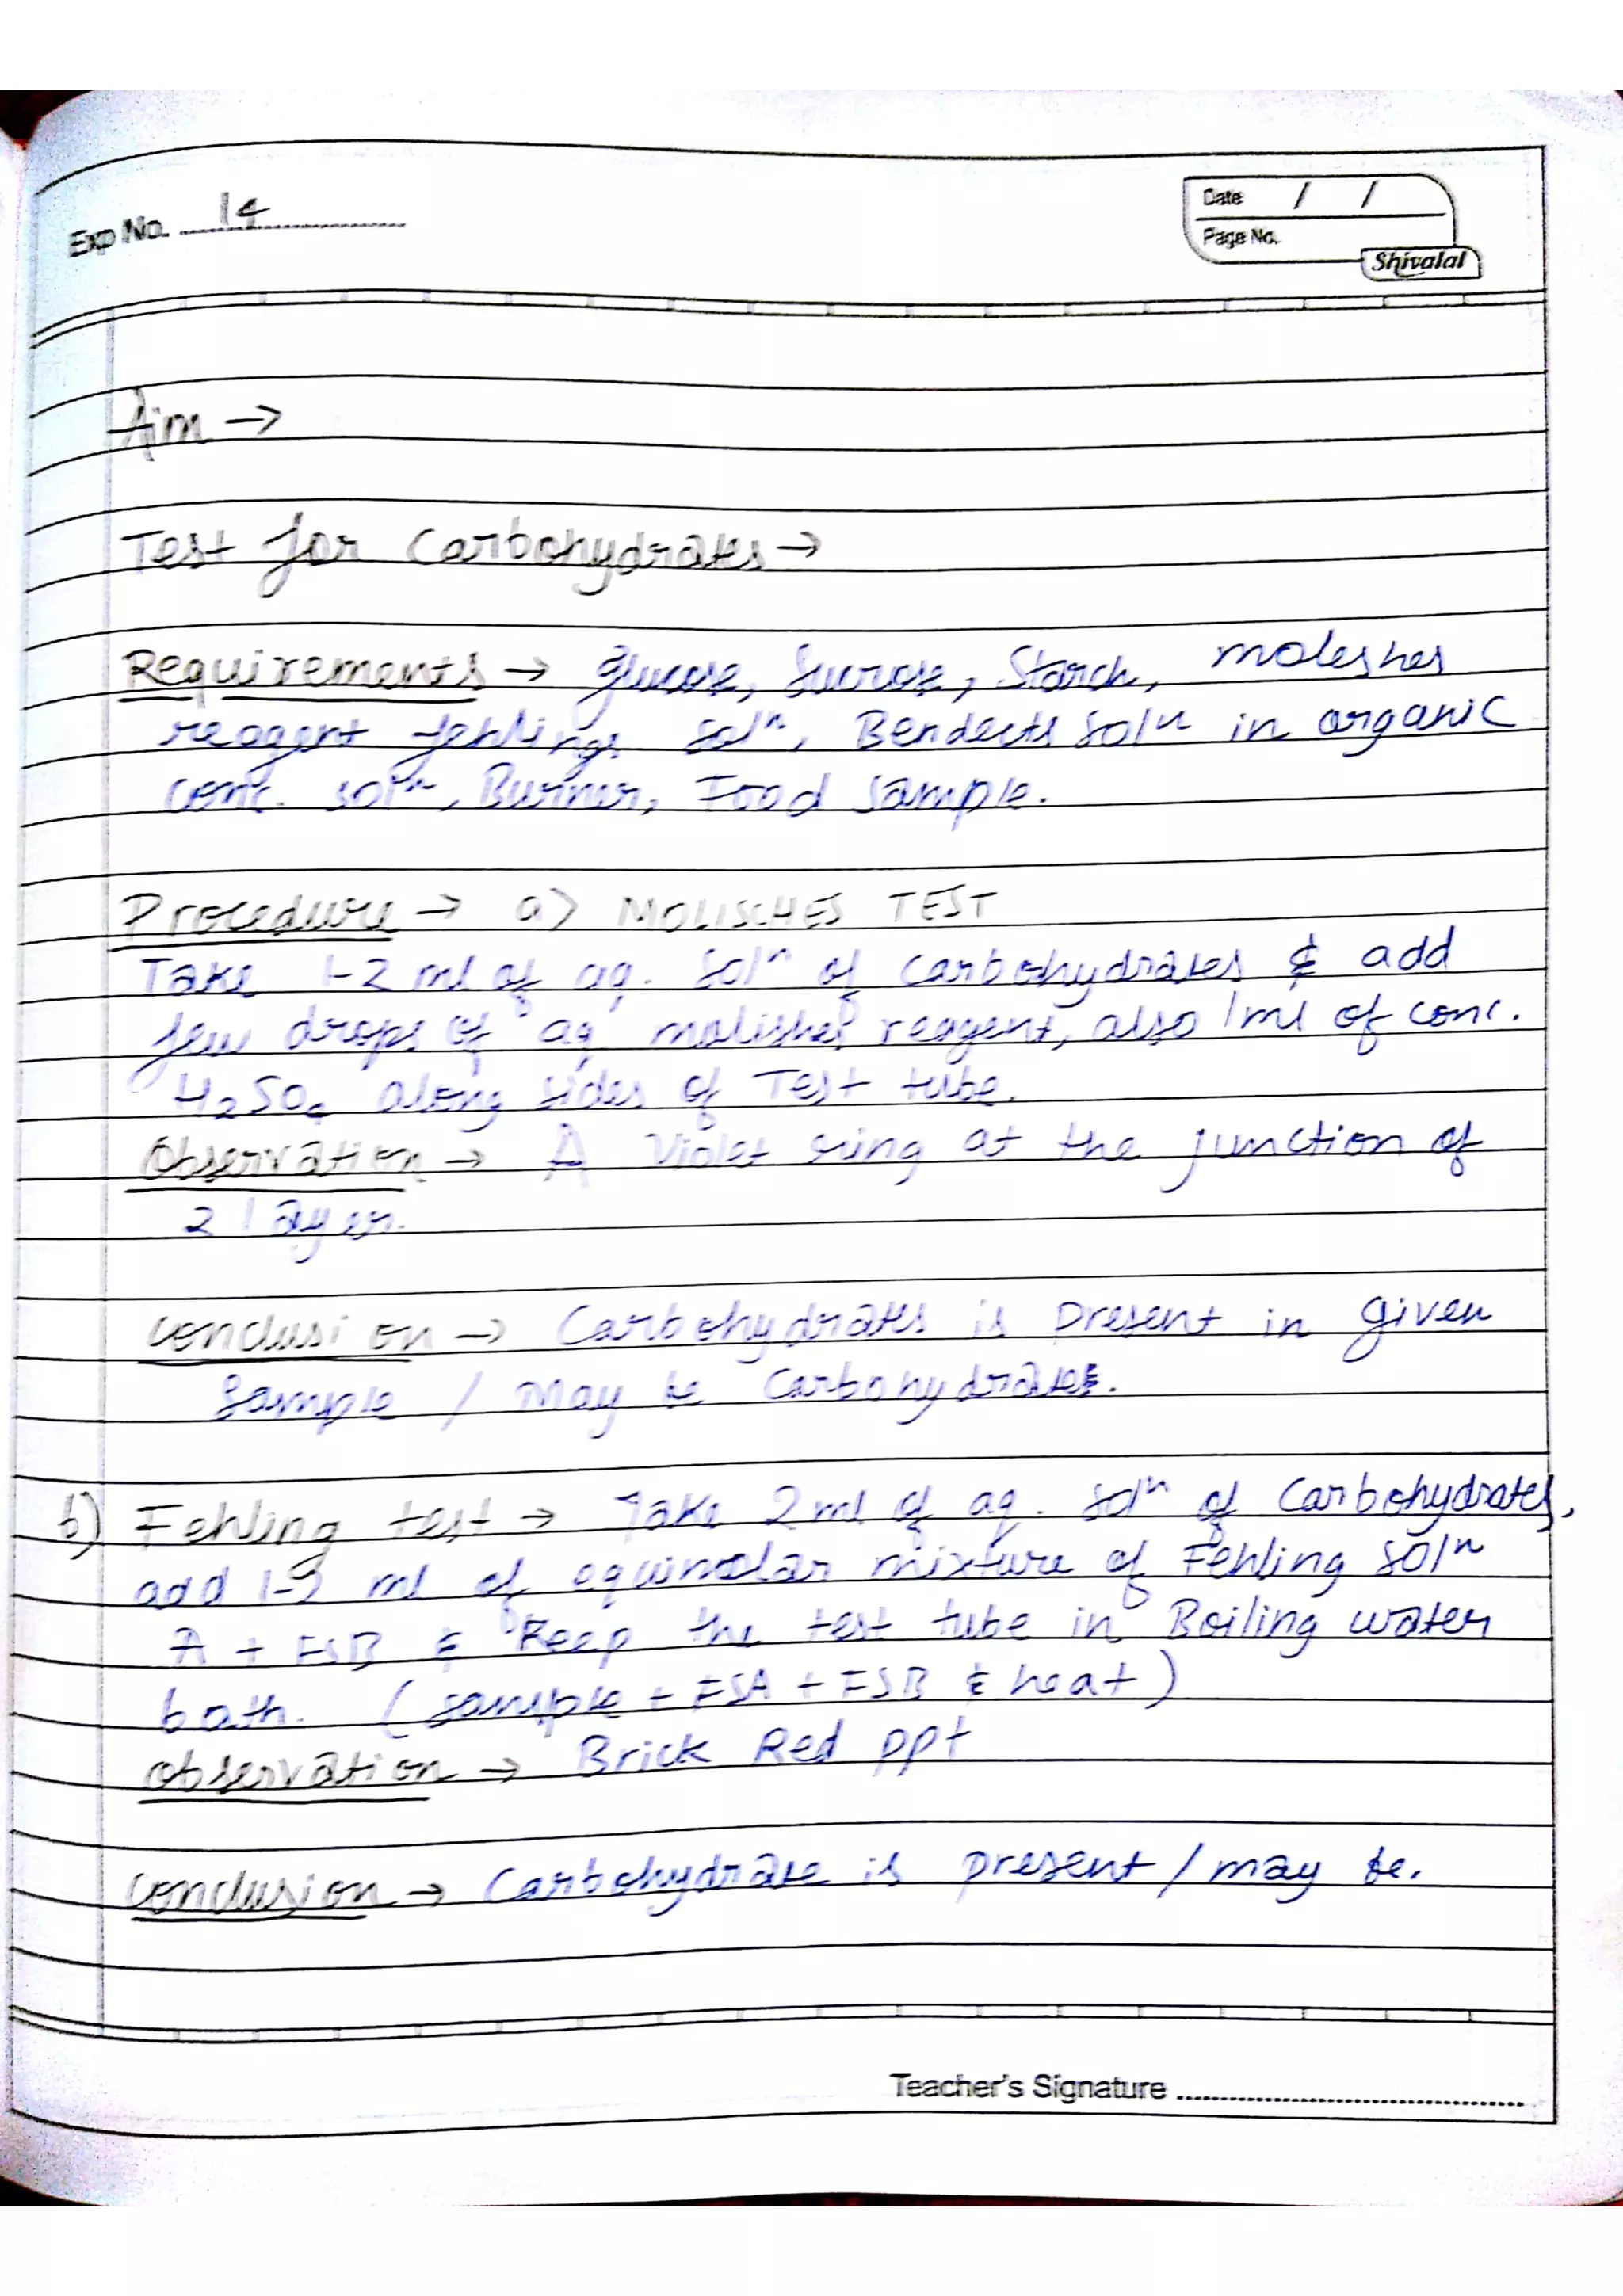 Exp No. 14
Date / /
Page No.
Shivalal
Aim →
Test for Carbohydrates →
Requirements → glucose, Sucrose, Starch, moleshes
reagent fehlings solⁿ, Bendects Solⁿ in organic
conc. solⁿ, Burner, Food Sample.
Procedure → a) MOLISCHES TEST
Take 1-2 ml of aq. Solⁿ of Carbohydrates & add
few drops of aq molishes reagent, also 1ml of conc.
H₂SO₄ along sides of Test tube.
Observation → A Violet ring at the junction of
2 layer.
Conclusion → Carbohydrates is Present in given
Sample / May be Carbohydrates.
b) Fehling test → Take 2 ml of aq. Solⁿ of Carbohydrates,
add 1-2 ml of equimolar mixture of Fehling Solⁿ
A + FSB & Keep the test tube in Boiling water
bath. (sample + FSA + FSB & heat)
Observation → Brick Red ppt
Conclusion → Carbohydrate is present / may be.
Teacher's Signature